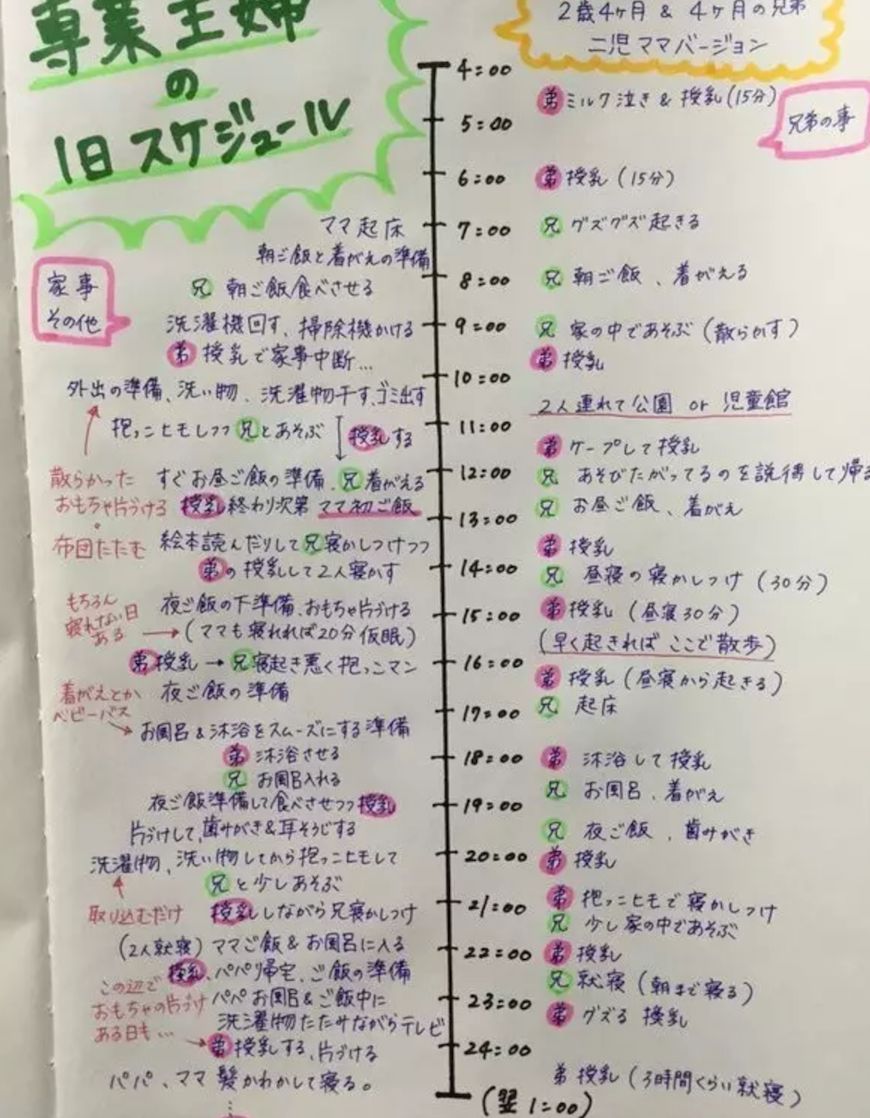 専業主婦
の
1日スケジュール
2歳4ヶ月 & 4ヶ月の兄弟
二児ママバージョン
兄弟の事
家事
その他
4:00
弟 ミルク泣き & 授乳(15分)
5:00
6:00
弟 授乳 (15分)
ママ起床
7:00
兄 グズグズ起きる
朝ご飯と着がえの準備
8:00
兄 朝ご飯、着がえる
兄 朝ご飯食べさせる
洗濯機回す、掃除機かける
9:00
兄 家の中であそぶ (散らかす)
弟 授乳で家事中断…
弟 授乳
10:00
外出の準備、洗い物、洗濯物干す、ゴミ出す
2人連れて公園 or 児童館
抱っこヒモしつつ兄とあそぶ
授乳する
11:00
弟 ケープして授乳
散らかった
おもちゃ片づける
すぐお昼ご飯の準備、兄着がえる
12:00
兄 あそびたがってるのを説得して帰る
授乳終わり次第 ママ初ご飯
兄 お昼ご飯、着がえ
13:00
布団たたむ
絵本読んだりして兄寝かしつけつつ
弟 授乳
弟の授乳して2人寝かす
14:00
兄 昼寝の寝かしつけ (30分)
もちろん
寝れない日
ある
夜ご飯の下準備、おもちゃ片づける
15:00
弟 授乳 (昼寝30分)
(ママも寝れれば20分仮眠)
(早く起きれば ここで散歩)
弟授乳 → 兄寝起き悪く抱っこマン
16:00
弟 授乳 (昼寝から起きる)
着がえとか
ベビーバス
夜ご飯の準備
17:00
兄 起床
お風呂&沐浴をスムーズにする準備
弟 沐浴させる
18:00
弟 沐浴して授乳
兄 お風呂入れる
兄 お風呂、着がえ
夜ご飯準備して食べさせつつ授乳
19:00
片づけして、歯みがき&耳そうじする
兄 夜ご飯、歯みがき
洗濯物、洗い物してから抱っこヒモして
20:00
弟 授乳
兄と少しあそぶ
弟 抱っこヒモで寝かしつけ
取り込むだけ
授乳しながら兄寝かしつけ
21:00
兄 少し家の中であそぶ
(2人就寝) ママご飯&お風呂に入る
22:00
弟 授乳
授乳、パパ帰宅、ご飯の準備
兄 就寝 (朝まで寝る)
この辺で
おもちゃの片づけ
ある日も…
パパお風呂&ご飯中に
23:00
弟 グズる 授乳
洗濯物たたみながらテレビ
弟授乳する、片づける
24:00
パパ、ママ髪かわかして寝る。
弟 授乳 (3時間くらい就寝)
(翌1:00)